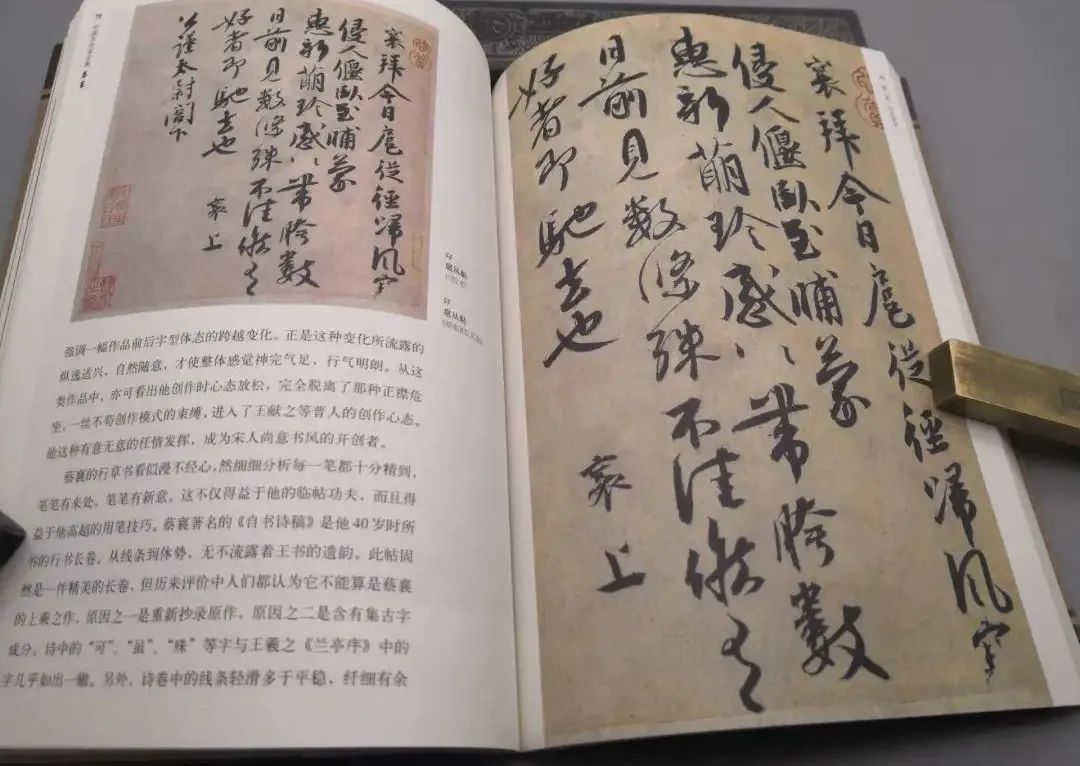 襄拜今日扈從徑歸風寒
侵人偃臥至晡蒙
惠新萌珍感㆐帶胯數
日前見數條殊不佳候有
好者即馳去也
襄上
公謹太尉閣下
扈从帖
扈从帖
强调一幅作品前后字型体态的跨越变化。正是这种变化所流露的
纵逸适兴，自然随意，才使整体感觉神完气足、行气明朗。从这
类作品中，亦可看出他创作时心态放松，完全脱离了那种正襟危
坐，一丝不苟创作模式的束缚，进入了王献之等晋人的创作心态。
他这种有意无意的任情发挥，成为宋人尚意书风的开创者。
蔡襄的行草书看似漫不经心，然细细分析每一笔都十分精到，
笔笔有来处，笔笔有新意。这不仅得益于他的临帖功夫，而且得
益于他高超的用笔技巧。蔡襄著名的《自书诗稿》是他40岁时所
书的行书长卷，从线条到体势，无不流露着王书的遗韵，此帖固
然是一件精美的长卷，但历来评价中人们都认为它不能算是蔡襄
的上乘之作，原因之一是重新抄录原作，原因之二是含有集古字
成分。诗中的“可”、“虽”、“殊”等字与王羲之《兰亭序》中的
字几乎如出一辙。另外，诗卷中的线条轻滑多于平稳，纤细有余
襄拜今日扈從徑歸風寒
侵人偃臥至晡蒙
惠新萌珍感㆐帶胯數
日前見數條殊不佳候有
好者即馳去也
襄上